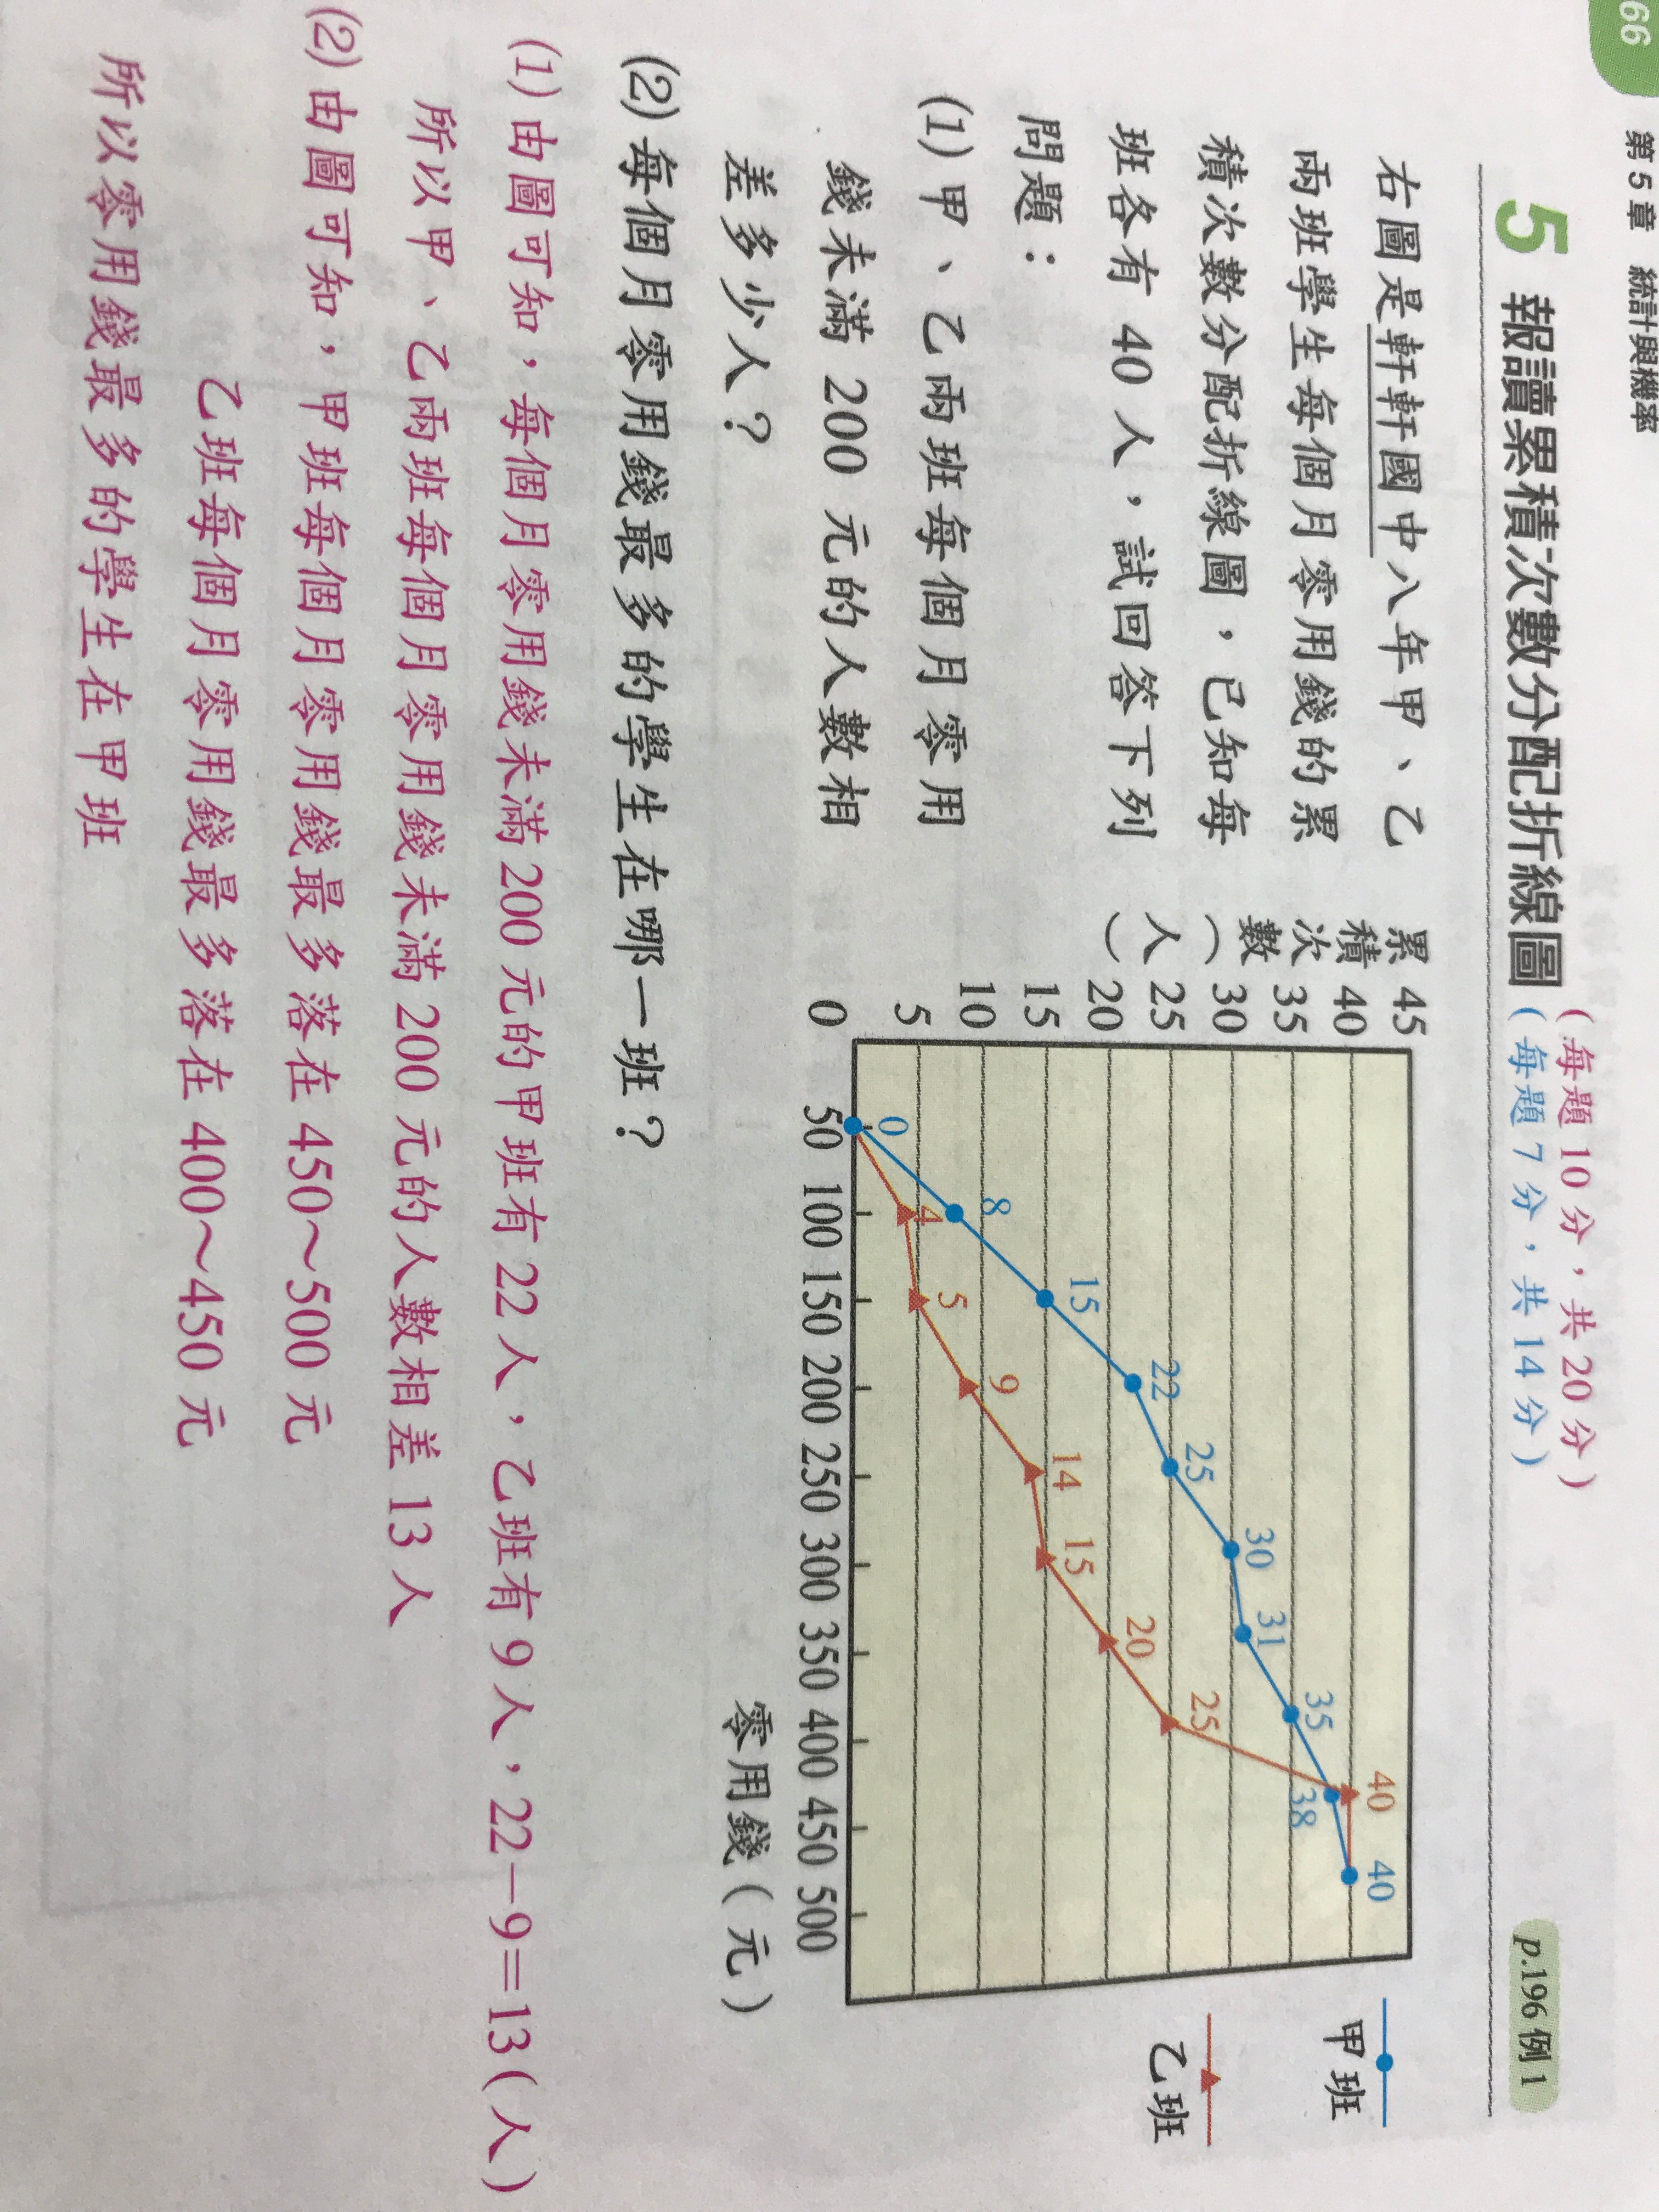 66
第 5 章　統計與機率
5 報讀累積次數分配折線圖
(每題 10 分，共 20 分)
(每題 7 分，共 14 分)
p.196 例 1
右圖是軒軒國中八年甲、乙
兩班學生每個月零用錢的累
積次數分配折線圖，已知每
班各有 40 人，試回答下列
問題：
(1) 甲、乙兩班每個月零用
錢未滿 200 元的人數相
差多少人？
(2) 每個月零用錢最多的學生在哪一班？
累積次數(人)
45
40
35
30
25
20
15
10
5
0
0 8 15 22 25 30 31 35 38 40
4 5 9 14 15 20 25 40
50 100 150 200 250 300 350 400 450 500
零用錢(元)
甲班
乙班
(1) 由圖可知，每個月零用錢未滿 200 元的甲班有 22 人，乙班有 9 人，22－9＝13(人)
所以甲、乙兩班每個月零用錢未滿 200 元的人數相差 13 人
(2) 由圖可知，甲班每個月零用錢最多落在 450～500 元
乙班每個月零用錢最多落在 400～450 元
所以零用錢最多的學生在甲班